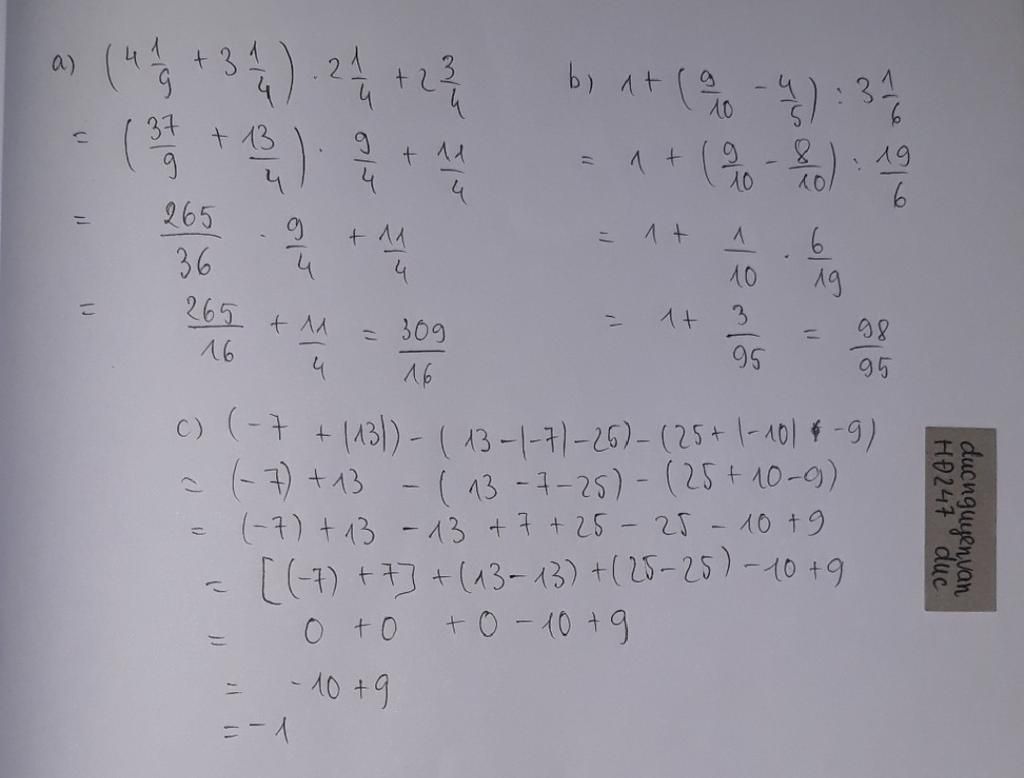 a) (4 1/9 + 3 1/4) . 2 1/4 + 2 3/4
= (37/9 + 13/4) . 9/4 + 11/4
= 265/36 . 9/4 + 11/4
= 265/16 + 11/4 = 309/16
b) 1 + (9/10 - 4/5) : 3 1/6
= 1 + (9/10 - 8/10) : 19/6
= 1 + 1/10 . 6/19
= 1 + 3/95 = 98/95
c) (-7 + |13|) - (13 - |-7| - 25) - (25 + |-10| -9)
= (-7) + 13 - (13 - 7 - 25) - (25 + 10 - 9)
= (-7) + 13 - 13 + 7 + 25 - 25 - 10 + 9
= [(-7) + 7] + (13 - 13) + (25 - 25) - 10 + 9
= 0 + 0 + 0 - 10 + 9
= -10 + 9
= -1
ducnguyenvan
HĐ247 duc